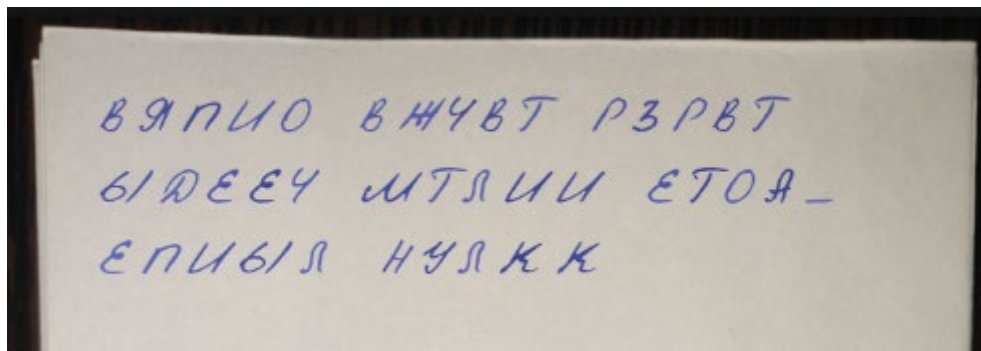 ВЯПИО ВЖЧВТ РЗРВТ
ЫДЕЕЧ МТЛИИ ЕТОА_
ЕПИЫЛ НУЛКК